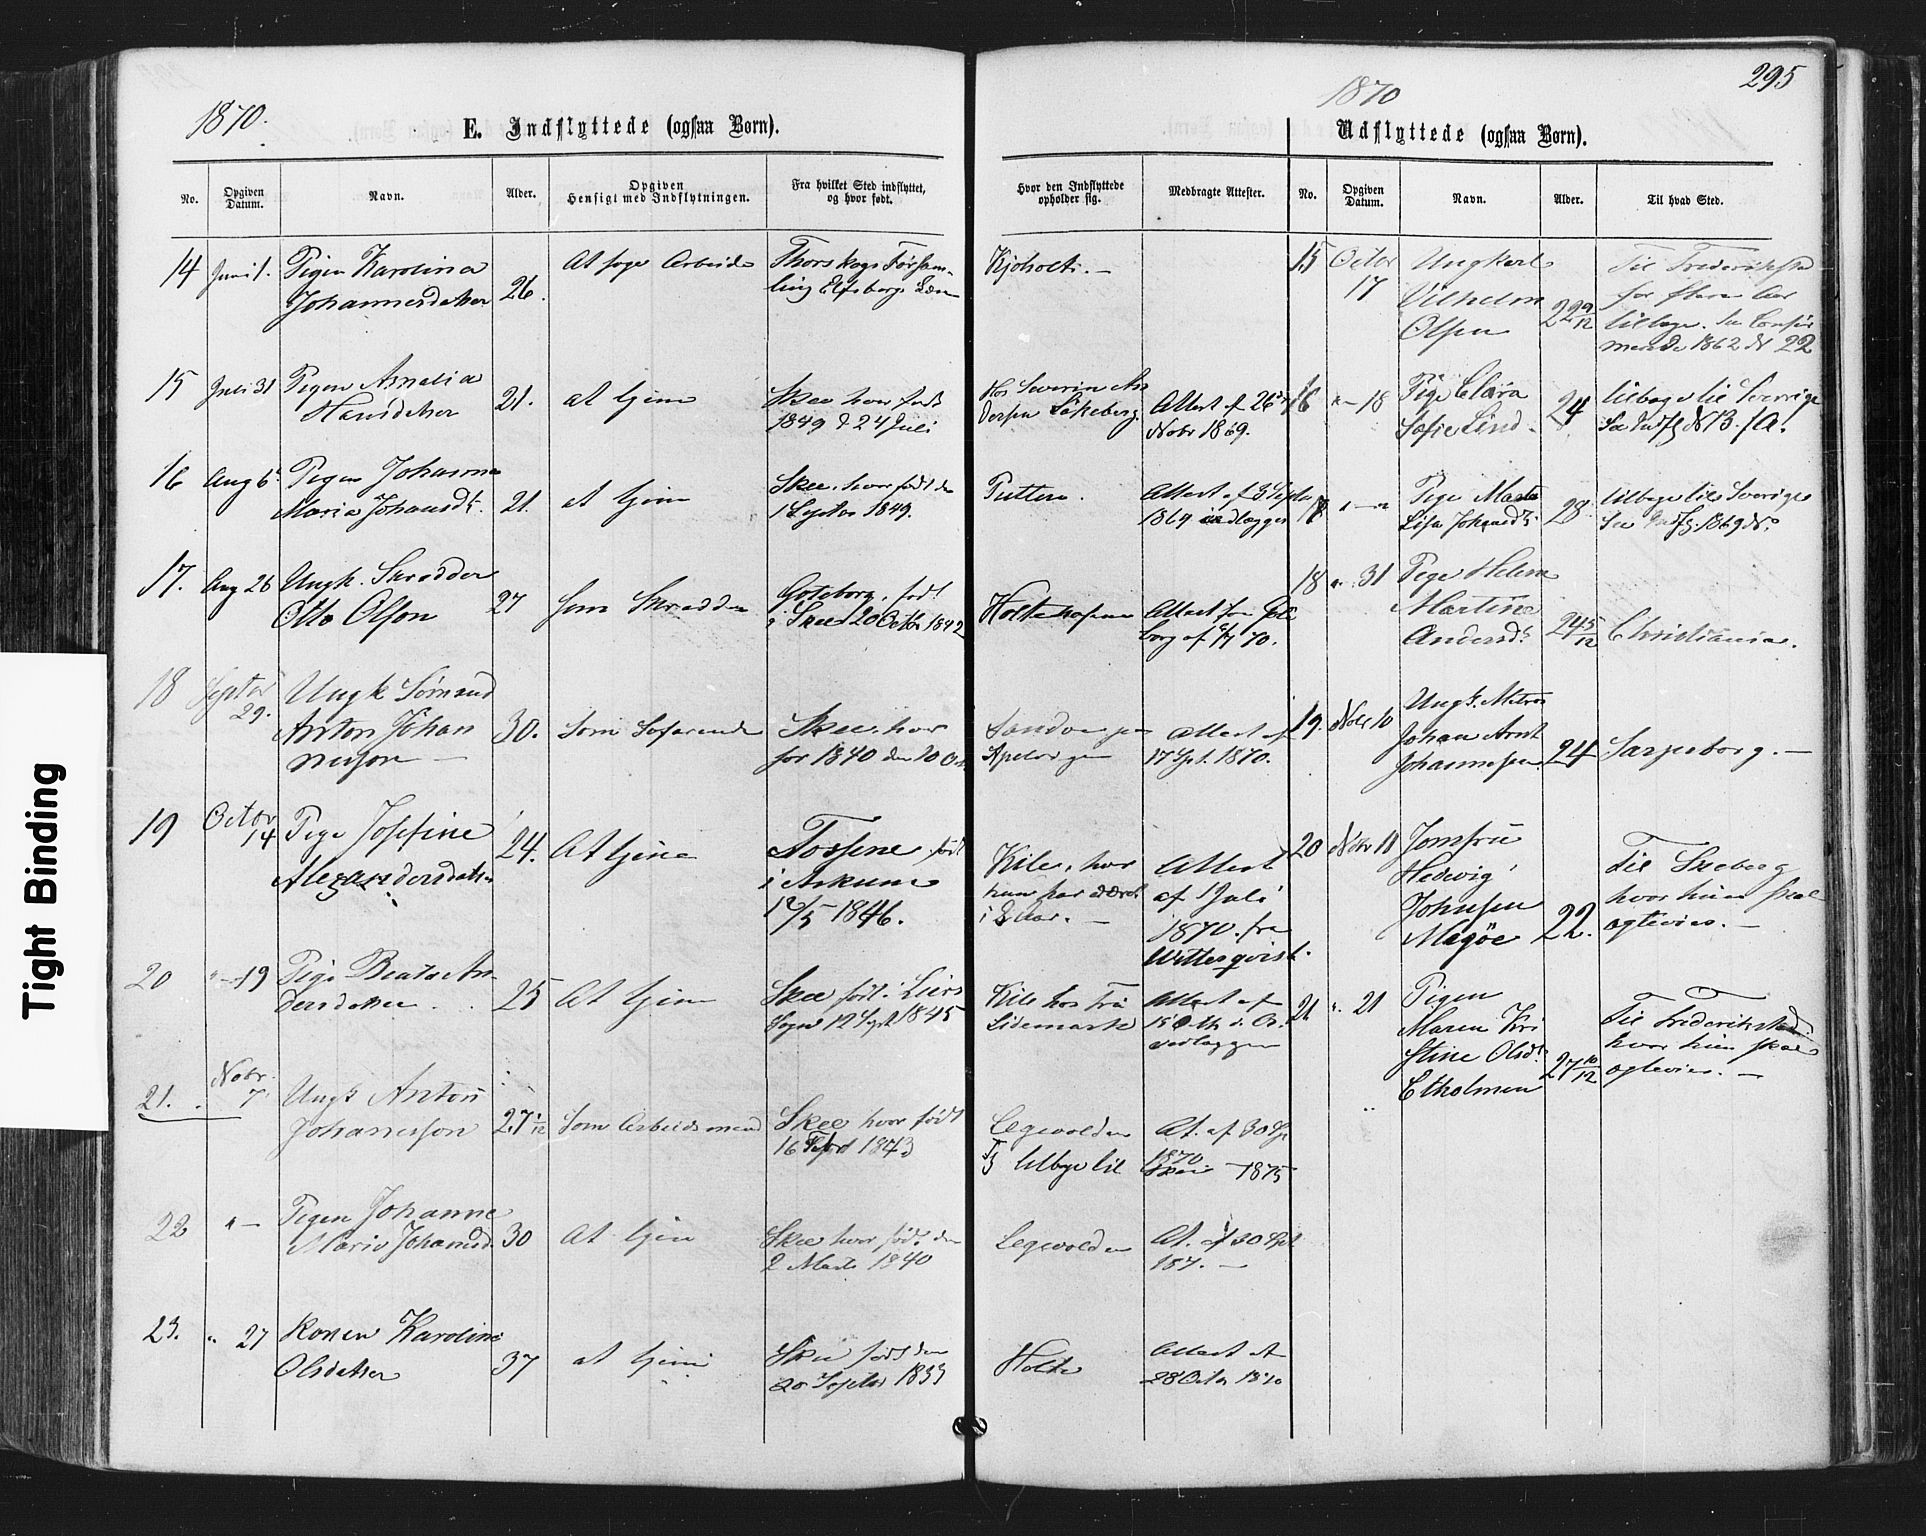 1870.
E. Indflyttede (ogsaa Børn).
No.
Opgiven
Datum.
Navn.
Alder.
Opgiven
Hensigt med Indflytningen.
Fra hvilket Sted indflyttet,
og hvor født.
14 Juni 1. Pigen Karolina
Johannesdatter 26.
At søge Arbeide
Thorskogs Førsam-
ling Elfsborgs Læn
15 Juli 31 Pigen Amalia
Hansdatter 21. at tjene
Skee hvor født
1849 d 24 Juli
16 Aug 6 Pigen Johanna
Maria Johansdt. 21. at tjene
Skee, hvor født den
1 Septbr 1849.
17. Aug 26 Ungk. Skrædder
Otto Olson 27 som Skrædder
Gøteborg, født
i Skee 20 Octbr 1842
18 Septbr
29.
Ungk Sømand
Anton Johan
nesson 30. Som Søfarende
Skee, hvor
før 1840 den 20 Oct
19 Octbr
14 Pige Josefine
Alexandersdatter 24. At tjene
Tossene, født
i Askum
12/5 1846.
20 " 19 Pige Beata An
dersdatter 25 At tjene
Skee født i Liers
Sogn 12 Sept 1845
21. Nobr
7 Ungk Anton
Johannesson 27 1/12 Som Arbeidsmand
Skee hvor født
16 1843
22 " Pigen Johanne
Marie Johansd. 30 At tjene
Skee hvor født den
2 Marts 1840
23. " 27 Konen Karoline
Olsdatter 37 at tjene
Skee født den
20 Septbr 1833
295
1870
Udflyttede (ogsaa Børn).
Hvor den Indflyttede
opholder sig.
Medbragte Attester.
No.
Opgiven
Datum.
Navn.
Alder.
Til hvad Sted.
Kjøholt. —
Hos Severin An
dersen Løkeberg
Attest af 26
Nobr 1869.
Putten.
Attest af 3 Septbr
1869 indlægges
Holtehofsen
Attest fra Gøte
borg af 70.
Attest af
17 Spt. 1870.
Kile, hvor
hun har været
i 2 Aar. —
Attest
af 1 Juli
1870. fra
Witterqvist.
Kile hos Fru
Lidemark
Attest af
15 Octb. d. A.
vedlægges
Legevolden
At. af 30 Sp
1870
Fl tilbage til Skee — 1875
Legevolden
At. af 30 Spt
187. —
Holte
Attest af
28 Octbr 1870
15 Octbr
17
Ungkarl
Vilhelm
Olsen 22 9/12
Til Frederikstad
for flere Aar
tilbage. Se Confir
merede 1862 No 22
16 " 18 Pige Clara
Sofie Lind 24
tilbage til Sverige
Se Indfl No 13. f A.
17 " " Pige Marta
Lisa Johansdt. 28
tilbage til Sverige
Se Indfl. 1869 No
18 " 31 Pige Helene
Martine
Andersdt. 24 5/12 Christiania.
19. Nobr 10 Ungk.
Johan Arnt
Johannesen 24 Sarpsborg. —
20 Nobr 18 Jomfru
Hedevig
Johnsen
Magøe 22.
Til Skeberg
hvor hun skal
ægtevies. —
21 " 21 Pigen
Maren Kri
stine Olsdt.
Etholmen 27 10/12
Til Frederikstad
hvor hun skal
ægtevies. —
Tight Binding